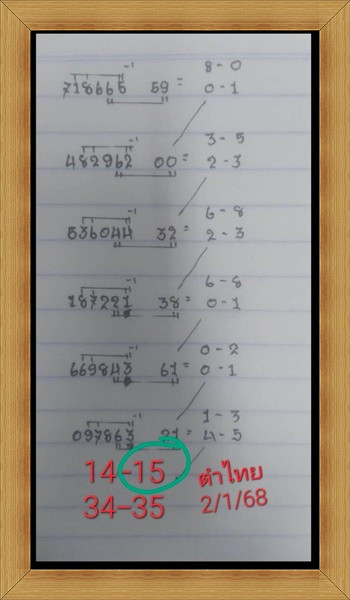 -1
8-0
718665 59 =
0-1
-1
3-5
482962 00 =
2-3
-1
6-8
536044 32 =
2-3
-1
6-8
187221 38 =
0-1
-1
0-2
669843 61 =
0-1
-1
1-3
097863 21 =
4-5
14-15
34-35
ตำไทย
2/1/68